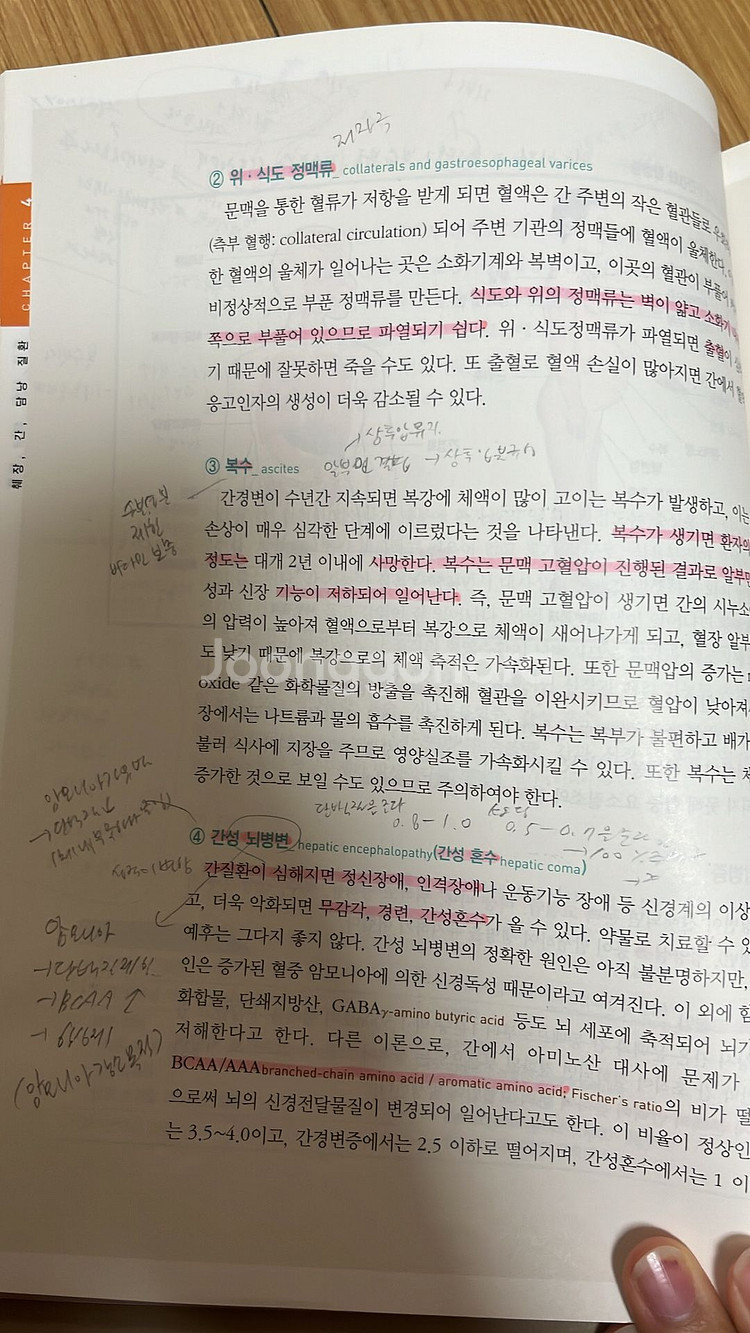 저자극
② 위·식도 정맥류_ collaterals and gastroesophageal varices
문맥을 통한 혈류가 저항을 받게 되면 혈액은 간 주변의 작은 혈관들로
(측부 혈행: collateral circulation) 되어 주변 기관의 정맥들에 혈액이 울체한다.
한 혈액의 울체가 일어나는 곳은 소화기계와 복벽이고, 이곳의 혈관이 부풀어
비정상적으로 부푼 정맥류를 만든다. 식도와 위의 정맥류는 벽이 얇고 소화기
쪽으로 부풀어 있으므로 파열되기 쉽다. 위·식도정맥류가 파열되면 출혈이
기 때문에 잘못하면 죽을 수도 있다. 또 출혈로 혈액 손실이 많아지면 간에서
응고인자의 생성이 더욱 감소될 수 있다.
③ 복수_ ascites
간경변이 수년간 지속되면 복강에 체액이 많이 고이는 복수가 발생하고, 이는
손상이 매우 심각한 단계에 이르렀다는 것을 나타낸다. 복수가 생기면 환자의
정도는 대개 2년 이내에 사망한다. 복수는 문맥 고혈압이 진행된 결과로 알부민
성과 신장 기능이 저하되어 일어난다. 즉, 문맥 고혈압이 생기면 간의 시누소
의 압력이 높아져 혈액으로부터 복강으로 체액이 새어나가게 되고, 혈장 알부
도 낮기 때문에 복강으로의 체액 축적은 가속화된다. 또한 문맥압의 증가는
oxide 같은 화학물질의 방출을 촉진해 혈관을 이완시키므로 혈압이 낮아져
장에서는 나트륨과 물의 흡수를 촉진하게 된다. 복수는 복부가 불편하고 배가
불러 식사에 지장을 주므로 영양실조를 가속화시킬 수 있다. 또한 복수는 체
증가한 것으로 보일 수도 있으므로 주의하여야 한다.
0.8-1.0
④ 간성 뇌병변_ hepatic encephalopathy(간성 혼수 hepatic coma)
간질환이 심해지면 정신장애, 인격장애나 운동기능 장애 등 신경계의 이상
고, 더욱 악화되면 무감각, 경련, 간성혼수가 올 수 있다. 약물로 치료할 수 있
예후는 그다지 좋지 않다. 간성 뇌병변의 정확한 원인은 아직 불분명하지만,
인은 증가된 혈중 암모니아에 의한 신경독성 때문이라고 여겨진다. 이 외에 함
화합물, 단쇄지방산, GABAγ-amino butyric acid 등도 뇌 세포에 축적되어 뇌기
저해한다고 한다. 다른 이론으로, 간에서 아미노산 대사에 문제가
BCAA/AAA branched-chain amino acid / aromatic amino acid; Fischer's ratio의 비가 떨
으로써 뇌의 신경전달물질이 변경되어 일어난다고도 한다. 이 비율이 정상인
는 3.5~4.0이고, 간경변증에서는 2.5 이하로 떨어지며, 간성혼수에서는 1 이
암모니아
→ 단백질 제한
→ BCAA ↑
CHAPTER 4
췌장, 간, 담낭 질환